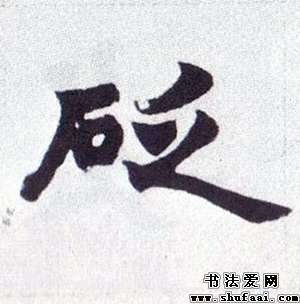 砭
书法爱网
www.shufaai.com